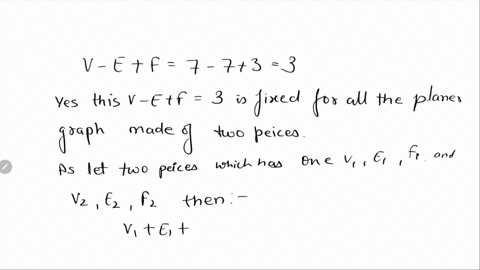 V - E + F = 7 - 7 + 3 = 3
Yes this V - E + f = 3 is fixed for all the planer
graph made of two peices.
As let two peices which has one V₁, E₁, f₁, and
V₂, E₂, f₂ then :-
V₁ + E₁ +